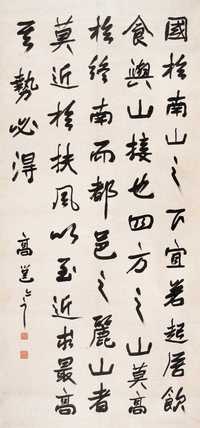 國於南山之下宜若起居飲
食與山接也四方之山莫高
於終南而都邑之麗山者
莫近於扶風以至近求最高
其勢必得
高邕